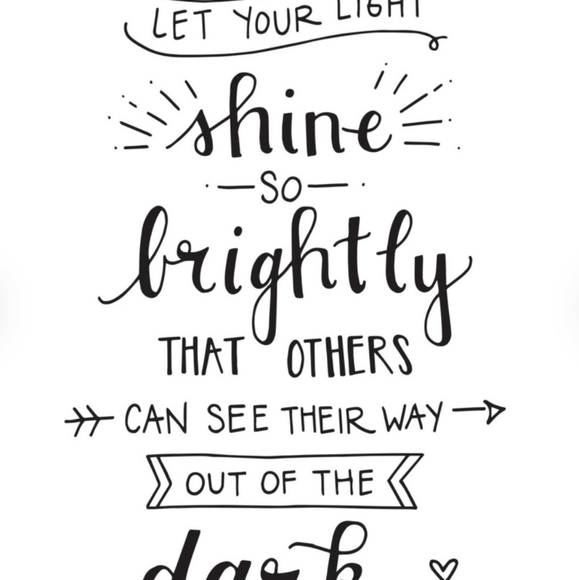 LET YOUR LIGHT
shine
SO
brightly
THAT OTHERS
CAN SEE THEIR WAY
OUT OF THE
dark